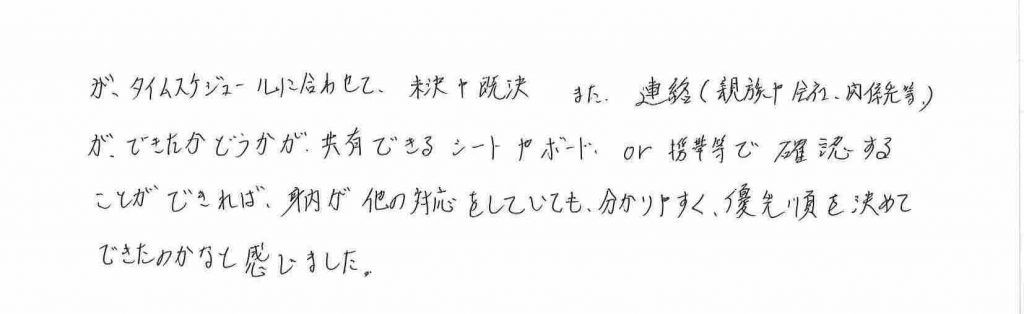 が、タイムスケジュールに合わせて、未決や既決 また、連絡(親族や会社、関係先等、)
が、できたかどうかが、共有できるシートやボード、or 携帯等で確認する
ことができれば、身内が他の対応をしていても、分かりやすく、優先順を決めて
できたのかなと感じました。